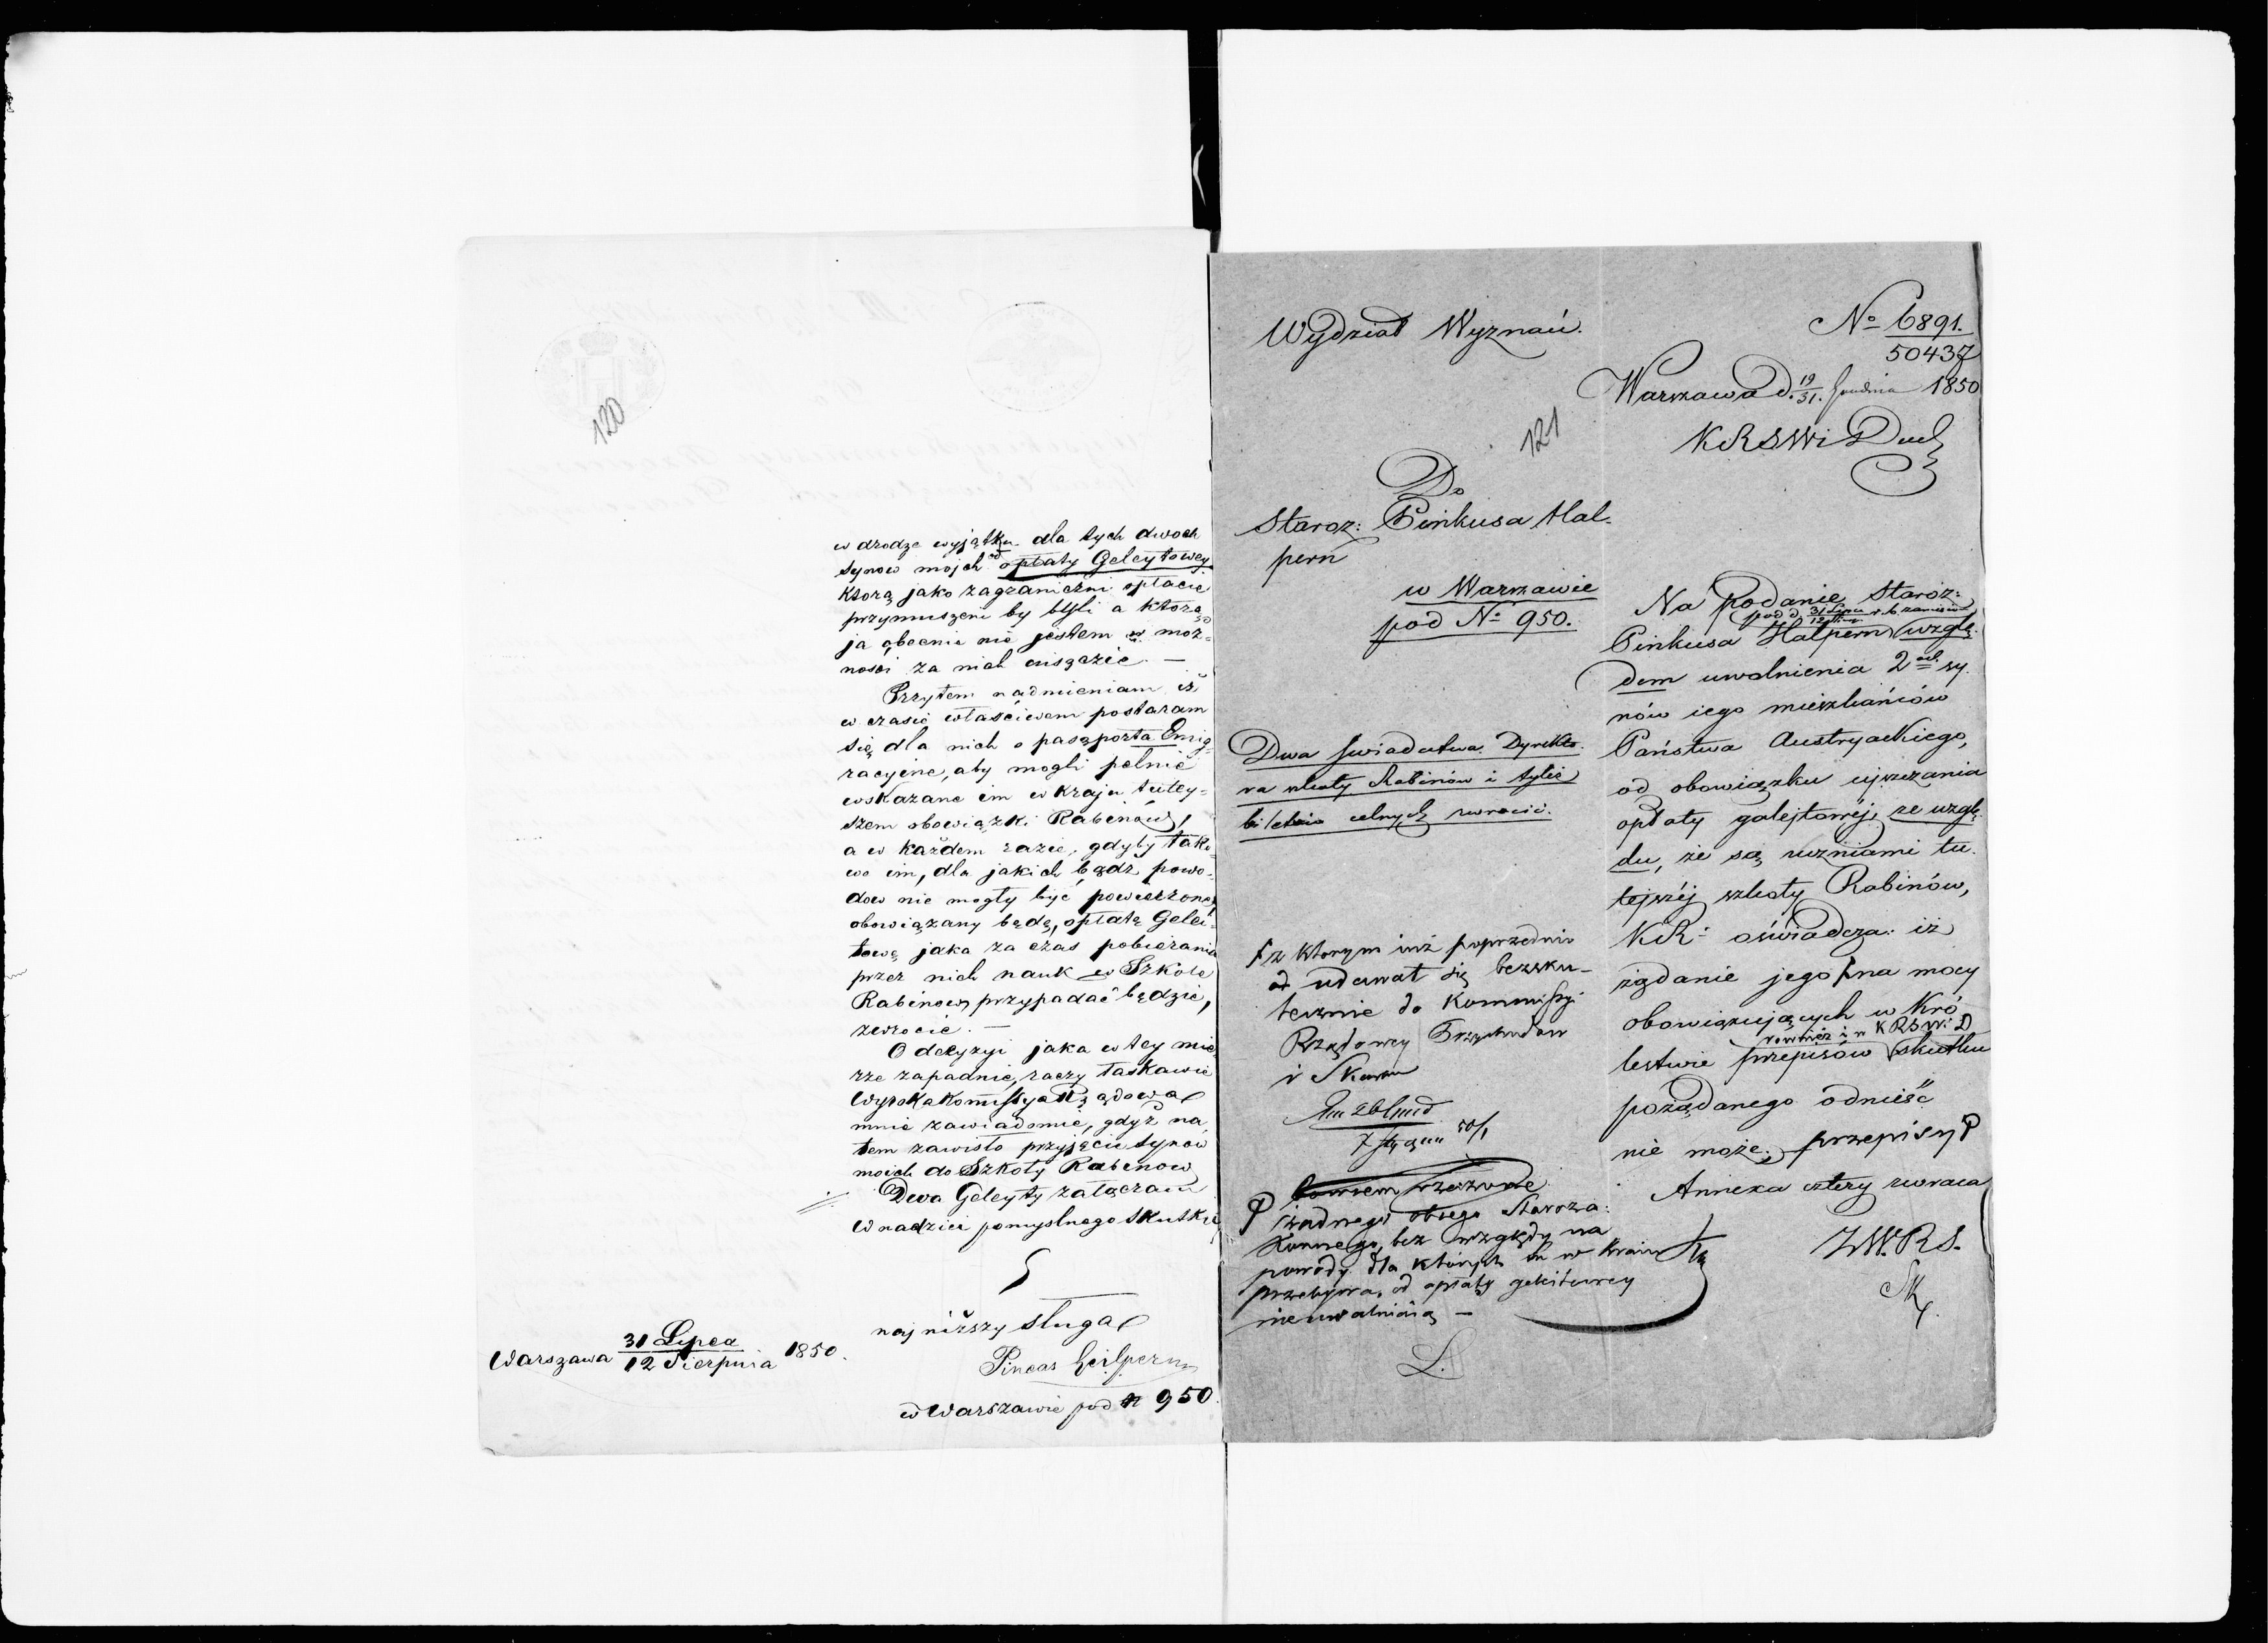 120
w drodze wyjątku dla tych dwoch
synow mojch od opłaty Geleytowey
ktorą jako zagraniczni opłacić
przymuszeni by byli a ktorą
ja obecnie nie jestem w moż=
ności za nich uiszczić. —
Przytem nadmieniam iż
w czasie właściwem postaram
się dla nich o paszporta Emig=
racyine, aby mogli pełnić
wskazane im w kraju tutey=
szem obowiązki Rabinów,
a w każdem razie, gdyby tako=
wo im, dla jakich bądz powo=
dow nie mogły być powierzone
obowiązany będę, opłatę Gelei=
tową jaka za czas pobierania
przez nich nauk w Szkole
Rabinow przypadać będzie,
zwrocić. —
O decyzyi jaka w tey mie=
rze zapadnie, raczy łaskawie
Wysoka Kommissya Rządowa
mnie zawiadomić, gdyż na
tem zawisło przyjęcie synow
moich do Szkoły Rabinow
Dwa Geleyty załączam
W nadziei pomyslnego skutku
najniższy sługa
Pincas Heilpern
w Warszawie pod N 950.
Warszawa 31 Lipca / 12 Sierpnia 1850.
Wydział Wyznań.
No 6891.
50437
Warszawa d. 19/31. Grudnia 1850
121
KRSWi Duch
Do
Staroz: Pinkusa Hal-
pern
w Warszawie
pod No 950.
Dwa świadectwa Dyrekto-
ra szkoły Rabinów i tyleż
biletów celnych zwrócić.
Na podanie Staroz:
pod d. 31 Lipca / 12 Sier. r. b. zaniesione
Pinkusa Halpern wzglę-
dem uwolnienia 2ch sy-
nów iego mieszkańców
Państwa Austryackiego,
od obowiązku uiszczania
opłaty galejtowéj, ze wzglę-
du, że są uczniami tu-
tejszéj szkoły Rabinów,
KR: oświadcza: iż
żądanie jego na mocy
obowiązujących w Kró-
lestwie przepisów skutku
pożądanego odnieść
nie może. przepisy
Annexa cztery zwraca
z ktorym iuż poprzednio
udawał się bezsku-
tecznie do Kommissyi
Rządowey Przychodow
i Skarbu
żadnego obcego Staroza-
konnego, bez względu na
powody dla których tu w kraiu
przebywa, od opłaty geleitowey
nieuwalniaią —
Z W. R S.
L.